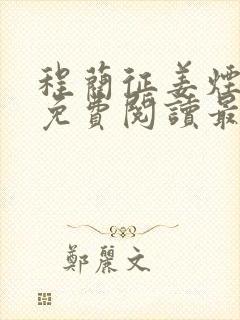 程蔺征姜煙
免費閱讀最
鄭麗文